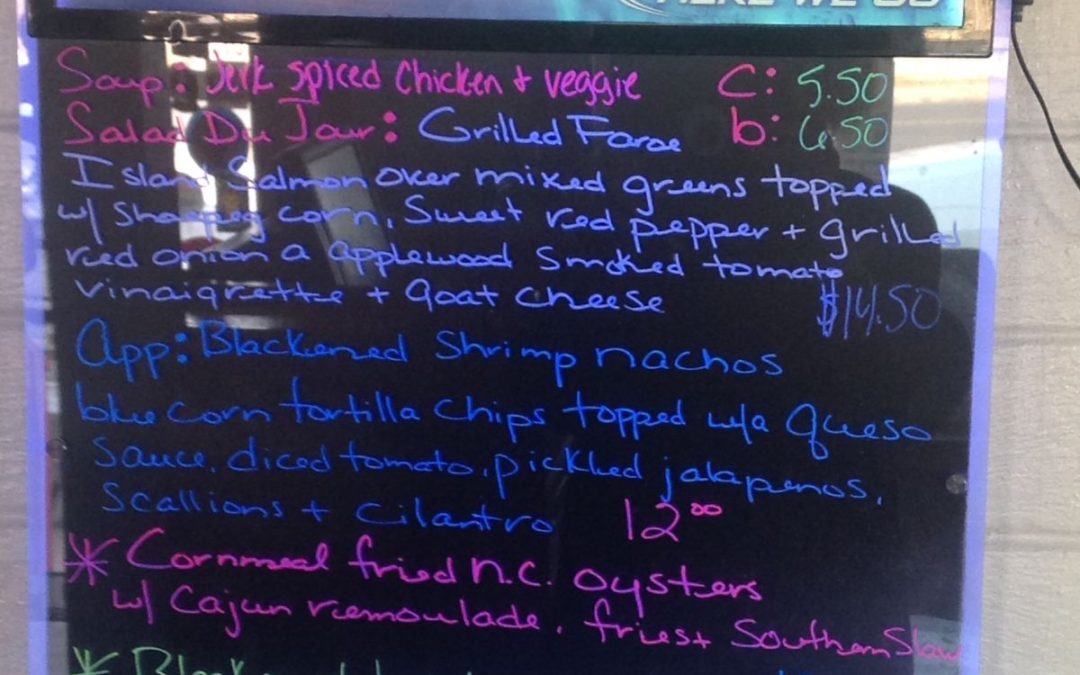 HERE WE GO
Soup: Jerk spiced Chicken + veggie C: 5.50
Salad Du Jour: Grilled Faroe b: 6.50
Island Salmon over mixed greens topped
w/ corn, Sweet red pepper + grilled
red onion a applewood smoked tomato
vinaigrette + goat cheese $14.50
App: Blackened Shrimp nachos
blue corn tortilla chips topped w/a queso
sauce, diced tomato, pickled jalapenos,
scallions + cilantro 12⁰⁰
* Cornmeal fried n.c. oysters
w/ Cajun remoulade, fries + Southern Slaw